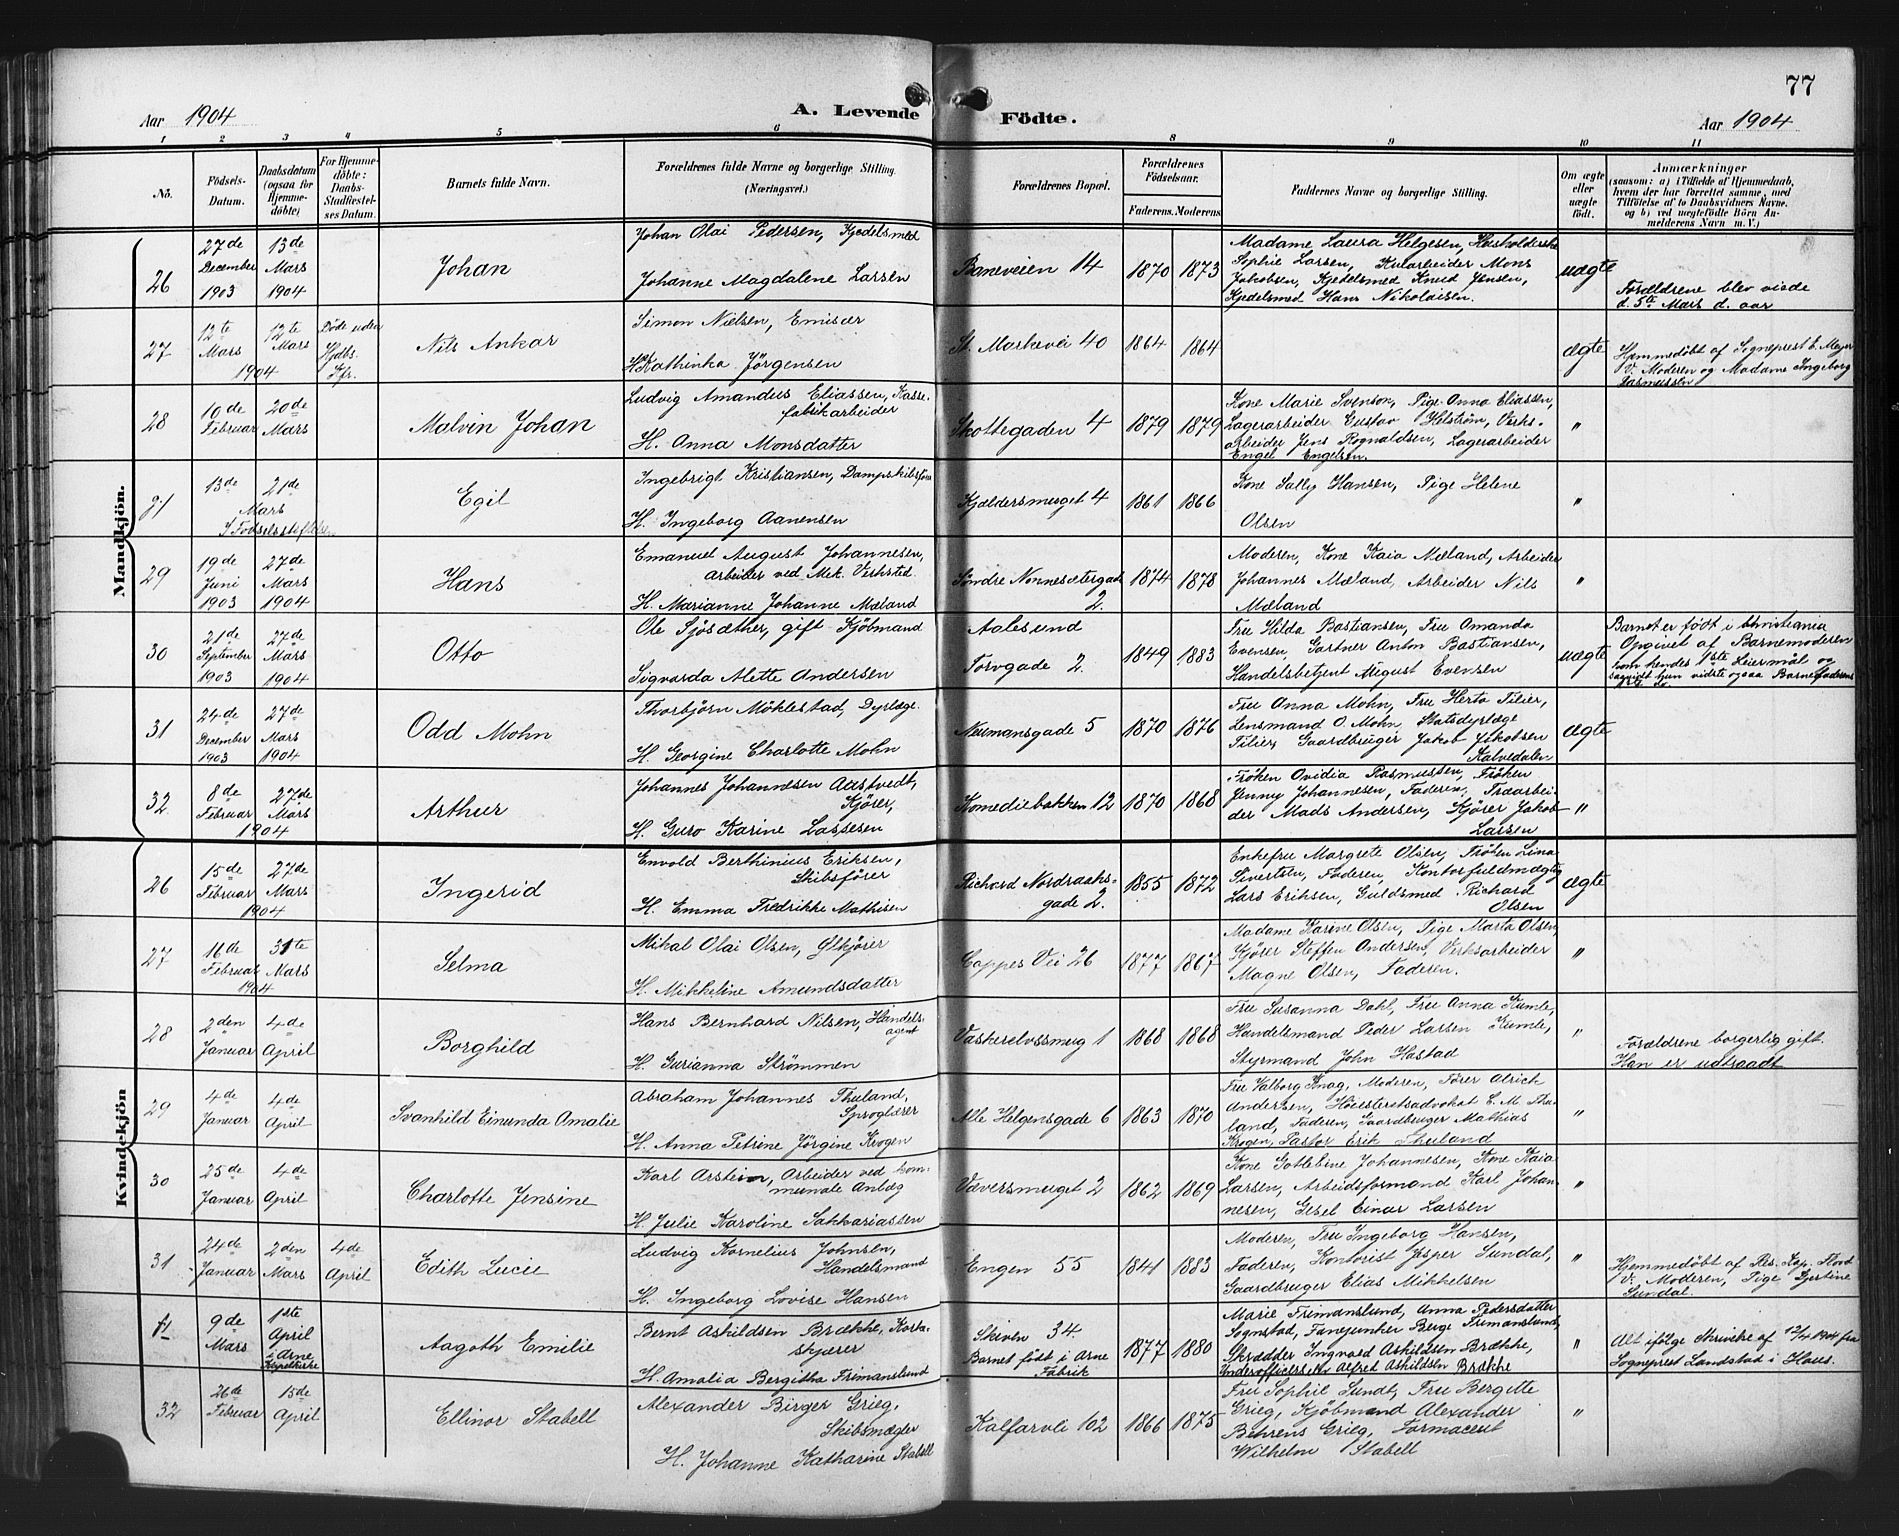 77
Aar 1904
A. Levende Födte.
Aar 1904
1 2 3 4 5 6 8 9 10 11
No.
Födsels-Datum.
Daabsdatum (ogsaa for Hjemmedöbte)
For Hjemmedöbte: Daabs-Stadfæstelses Datum.
Barnets fulde Navn.
Forældrenes fulde Navne og borgerlige Stilling. (Næringsvei.)
Forældrenes Bopæl.
Forældrenes Födselsaar.
Faderens. Moderens
Faddernes Navne og borgerlige Stilling.
Om ægte eller uægte födt.
Anmærkninger
(saasom: a) i Tilfælde af Hjemmedaab, hvem der har forrettet samme, med Tilföielse af to Daabsvidners Navne, og b) ved uægtefödte Börn Anmelderens Navn m. V.)
Mandkjön.
26
27de December 1903
13de Mars 1904
Johan
Johan Olai Pedersen, Kjedelsmed
Johanne Magdalene Larsen
Baneveien 14
1870 1873
Madame Laura Helgesen, Husholderske
Sophie Larsen, Kularbeider Mons
Jakobsen, Kjedelsmed Knud Jensen,
Kjedelsmed Hans Nikolaisen.
uægte
Forældrene blev viede
d. 5te Mars d. aar
27
12te Mars
12te Mars
1904
Döde uden Hjdbs.
Nils Ankar
Simon Nielsen, Emisær
Kathinka Jörgensen
St. Markevei 40
1864 1864
ægte
Hjemmedöbt af Sogneprest E. Meyer
V. Moderen og Madame Ingeborg
Rasmussen
28
10de Februar
20de Mars
Malvin Johan
Ludvig Amandus Eliassen, Kasse-
fabrikarbeider
H. Anna Monsdatter
Skottegaden 4
1879 1879
Kone Marie Svenson, Pige Anna Eliassen,
Lagerarbeider Gustav Helström, Verks-
arbeider Jens Rognaldsen, Lagerarbeider
Engel Engelsen.
"
13de 21de
Mars
I Födselsstiftelsen
Egil
Ingebrigt Kristiansen, Dampskibsförer
H. Ingeborg Aanensen
Kjeldersmuget 4
1861 1866
Kone Sally Hansen, Pige Helene
Olsen
"
29
19de Juni 1903
27de Mars 1904
Hans
Emanuel August Johannesen,
Arbeider ved Mek. Verksted
H. Marianne Johanne Mæland
Söndre Nonnesætergade
2.
1874 1878
Moderen, Kone Kaia Mæland, Arbeider
Johannes Mæland, Arbeider Nils
Mæland
"
30
21de September 1903
27de Mars 1904
Otto
Ole Sjösæther, gift Kjöbmand
Sigvarda Alette Andersen
Aalesund
Torvgade 2
1849 1883
Fru Hilda Bastiansen, Fru Amanda
Evensen, Gartner Anton Bastiansen,
Handelsbetjent August Evensen
uægte
Barnet er födt i Christiania
Opgivet af Barnemoderen
som hendes 1ste Leiermål og
saavidt hun vidste ogsaa Barnefaderens
31
24de December 1903
27de Mars 1904
Odd Mohn
Thorbjörn Möklestad, Dyrlæge
H. Georgine Charlotte Mohn
Nesmansgade 5
1870 1876
Fru Anna Mohn, Fru Herta Tilier,
Lensmand O. Mohn, Statsdyrlæge
Tilier, Gaardbruger Jakob Jakobsen
Kalvedalen
ægte
32
8de Februar
27de Mars
1904
Arthur
Johannes Johannesen Aastvedt,
Kjörer,
H. Guro Karine Lassesen
Komediebakken 12
1870 1868
Fröken Ovidia Rasmussen, Fröken
Jenny Johannesen, Faderen, Træarbei-
der Mads Andersen, Kjörer Jakob
Larsen
"
Kvindekjön
26
15de Februar
27de Mars
1904
Ingerid
Envold Berthinius Eriksen,
Skibsförer
H. Emma Fredrikke Mathisen
Richard Nordraaks-
gade 2.
1855 1872
Enkefru Margrete Olsen, Fröken Lina
Sivertsen, Faderen, Kontorfuldmægtig
Lars Eriksen, Guldsmed Richard
Olsen
ægte
27
16de Februar
31te Mars
1904
Selma
Mikal Olai Olsen, Ölkjörer
H. Mikkeline Amundsdatter
Cappes Vei 26
1877 1867
Madame Karine Olsen, Pige Marta Olsen,
Kjörer Steffen Andersen, Verksarbeider
Magne Olsen, Faderen.
"
28
2den Januar
4de April
Borghild
Hans Bernhard Nilsen, Handels-
agent
H. Gurianna Strömmen
Vaskerelvssmug 1
1868 1868
Fru Susanna Dahl, Fru Anna Kumle,
Handelsmand Peder Larsen Kumle,
Styrmand John Hastad
"
Forældrene borgerlig gift.
Han er udtraadt
29
4de Januar
4de April
Svanhild Einunda Amalie
Abraham Johannes Thuland,
Sproglærer
H. Anna Petrine Jörgine Krogen
Alle Helgensgade 6
1863 1870
Fru Valborg Knag, Moderen, Förer Alrich
Andersen, Höiesteretsadvokat E. M. Thu-
land, Faderen, Gaardbruger Mathias
Krogen, Pastor Erik Thuland
"
30
25de Januar
4de April
Charlotte Jensine
Karl Arstein, Arbeider ved kom-
munale Anlæg
H. Julie Karoline Sakkariassen
Væversmuget 2
1862 1869
Kone Gotlebine Johannesen, Kone Kaia
Larsen, Arbeidsformand Karl Johan-
nesen, Gesel Einar Larsen
"
31
24de Januar
2den Mars
4de April
Edith Lucie
Ludvig Kornelius Johnsen,
Handelsmand
H. Ingeborg Lovise Hansen
Engen 55
1841 1883
Moderen, Fru Ingeborg Hansen,
Faderen, Kontorist Jesper Sundal,
Gaardbruger Elias Mikkelsen
"
Hjemmedöbt af Res. Kap. Flood
V. Moderen, Pige Gjertine
Sundal.
9de Mars
1ste April i Arne Kapelkirke
Aagoth Emilie
Bernt Askildsen Brække, Kork-
skjærer
H. Amalia Bergitha Frimanslund
Skiven 34.
Barnet födt i Arne
Fabrik
1877 1880
Marie Frimanslund, Anna Pedersdatter
Sognstad, Fanejunker Berge Frimanslund,
Skrædder Ingvald Askildsen Brække,
Underofficerselev Alfred Askildsen Brække
"
Alt ifölge Skrivelse af 12/4 1904 fra
Sogneprest Landstad i Haus.
32
26de Februar
15de April
Ellinor Stabell
Alexander Birger Grieg,
Skibsmægler
H. Johanne Katharine Stabell
Kalfarvei 102
1866 1875
Fru Sophie Sundt, Fru Bergitte
Grieg, Kjöbmand Alexander
Behrens Grieg, Farmaceut
Wilhelm Stabell
"